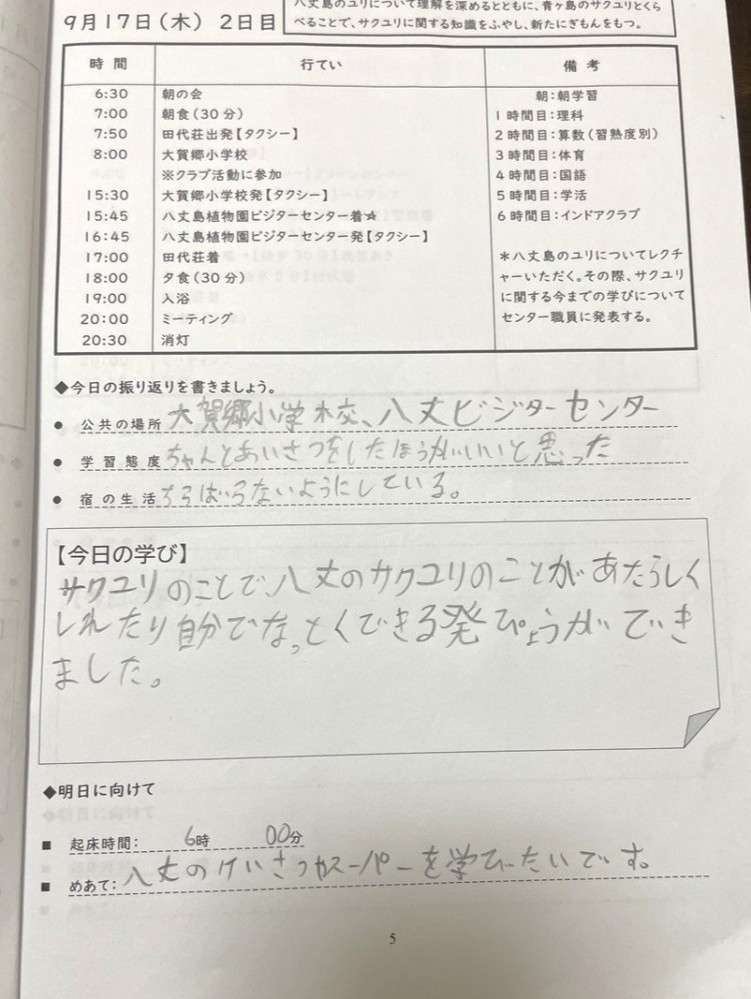 八丈島のユリについて理解を深めるとともに、青ヶ島のサクユリとくら
べることで、サクユリに関する知識をふやし、新たにぎもんをもつ。
9月17日(木) 2日目
時間 行てい 備考
6:30 朝の会 朝:朝学習
7:00 朝食(30分) 1時間目:理科
7:50 田代荘出発【タクシー】 2時間目:算数(習熟度別)
8:00 大賀郷小学校 3時間目:体育
※クラブ活動に参加 4時間目:国語
15:30 大賀郷小学校発【タクシー】 5時間目:学活
15:45 八丈島植物園ビジターセンター着★ 6時間目:インドアクラブ
16:45 八丈島植物園ビジターセンター発【タクシー】
17:00 田代荘着 *八丈島のユリについてレクチ
18:00 夕食(30分) ャーいただく。その際、サクユリ
19:00 入浴 に関する今までの学びについて
20:00 ミーティング センター職員に発表する。
20:30 消灯
◆今日の振り返りを書きましょう。
● 公共の場所 大賀郷小学校、八丈ビジターセンター
● 学習態度 ちゃんとあいさつをしたほうがいいと思った
● 宿の生活 ちらばらないようにしている。
【今日の学び】
サクユリのことで八丈のサクユリのことがあたらしく
しれたり自分でなっとくできる発ぴょうができ
ました。
◆明日に向けて
■ 起床時間: 6時 00分
■ めあて: 八丈のけいさつかスーパーを学びたいです。
5